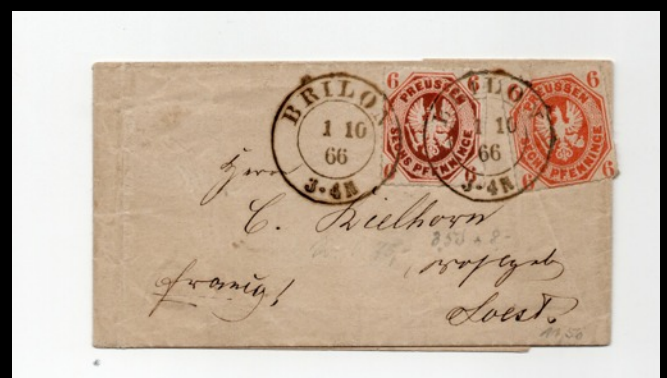 BRILON
1 10
66
3-4N
6 6
PREUSSEN
SECHS PFENNINGE
6 6
BRILON
1 10
66
3-4N
6 6
PREUSSEN
SECHS PFENNINGE
6 6
Herrn
C. Kielhorn
Soest.